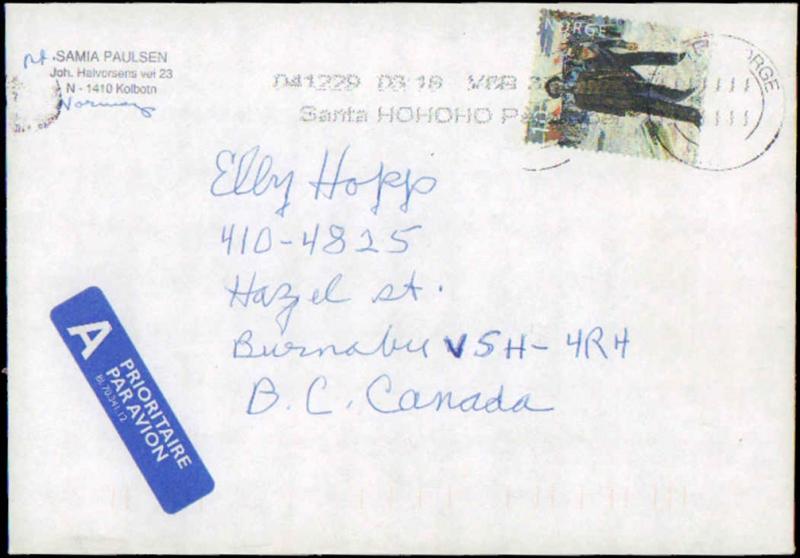 SAMIA PAULSEN
Joh. Halvorsens vei 23
N - 1410 Kolbotn
Norway
NORGE
NORGE
041229 03 18
Santa HOHOHO
Elly Hopp
410-4825
Hazel st.
Burnaby V5H-4R4
B.C. Canada
A
PRIORITAIRE
PAR AVION